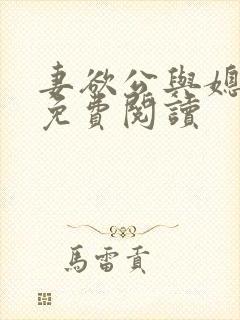 妻欲公與媳
免費閱讀
馬雷貢